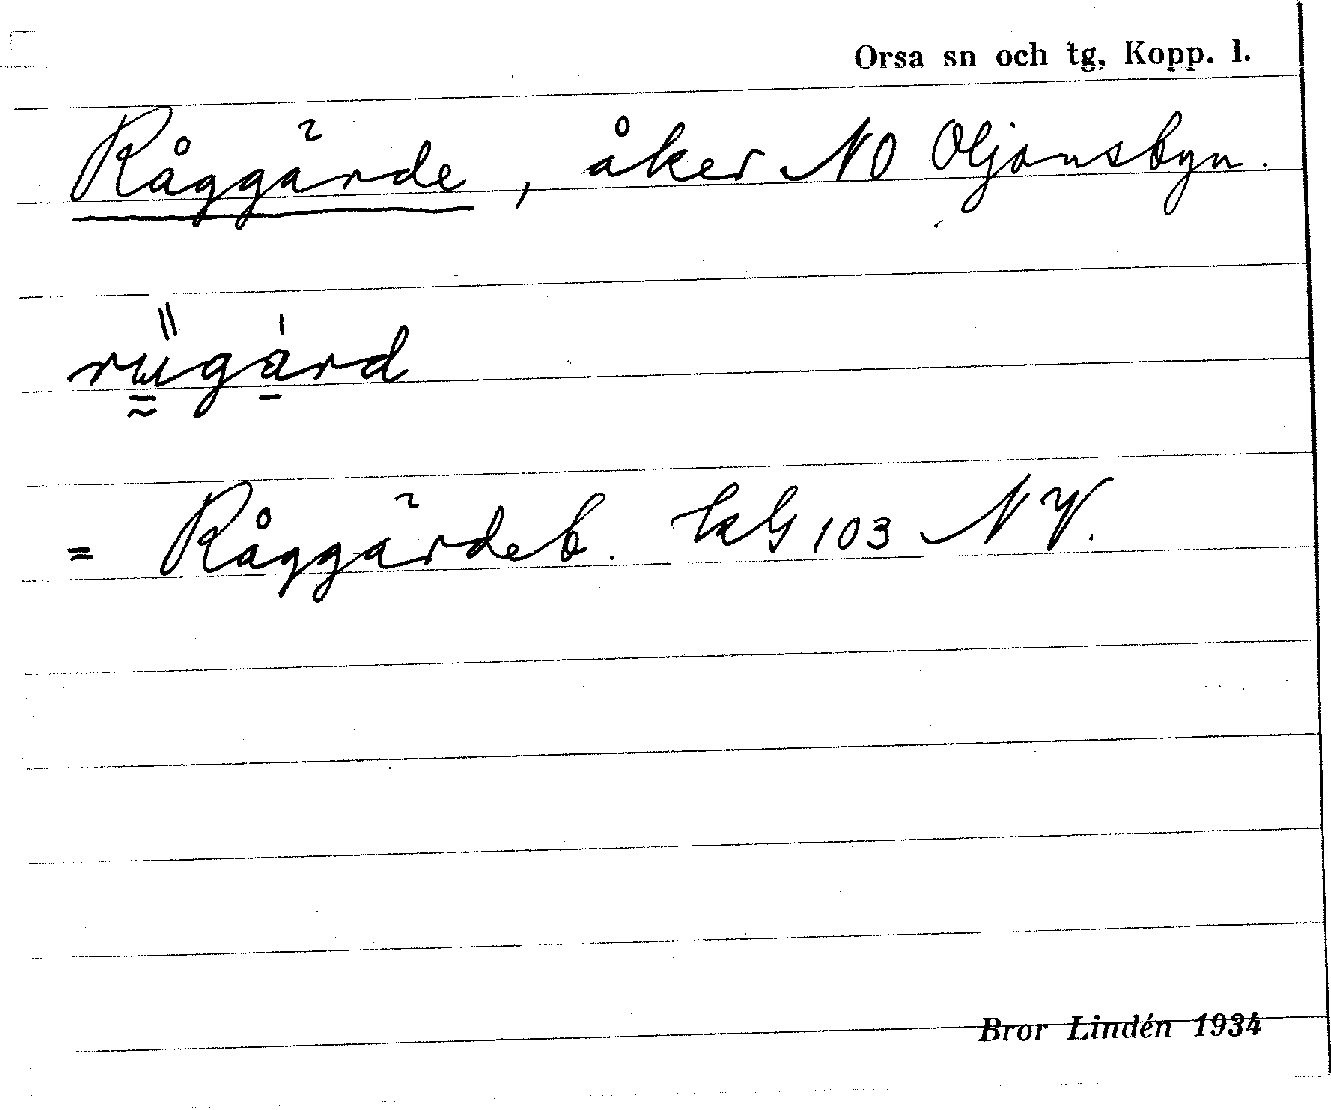 Orsa sn och tg, Kopp. l.
Råggärde, åker NO Oljonsbyn.
rügard
= Råggärdeb. LG 103 NV.
Bror Lindén 1934